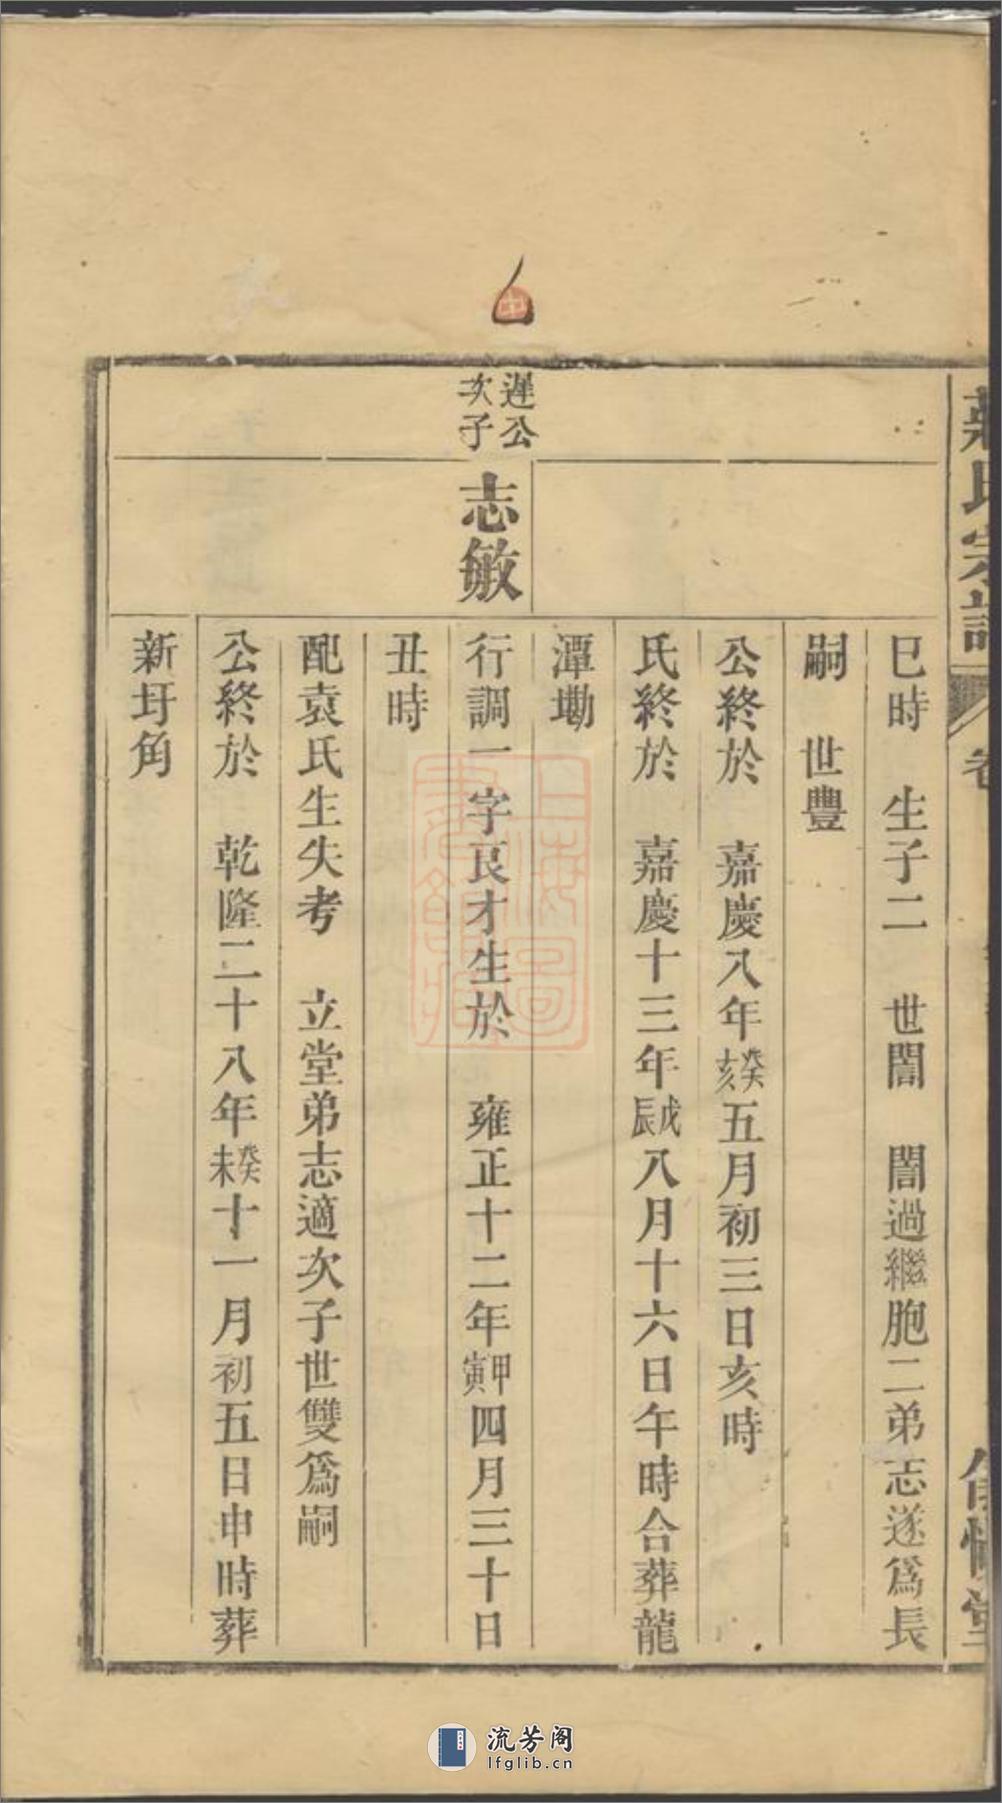 氏宗譜
卷
巳時　生子二　世誾　誾過繼胞二弟志遂爲長
嗣　世豐
公終於　嘉慶八年癸亥五月初三日亥時
氏終於　嘉慶十三年戊辰八月十六日午時合葬龍
潭墈
遲公
次子
志敏
行調一字良才生於　雍正十二年甲寅四月三十日
丑時
配袁氏生失考　立堂弟志適次子世雙爲嗣
公終於　乾隆二十八年癸未十一月初五日申時葬
新圩角
上海圖
書館藏
流芳阁
lfglib.cn